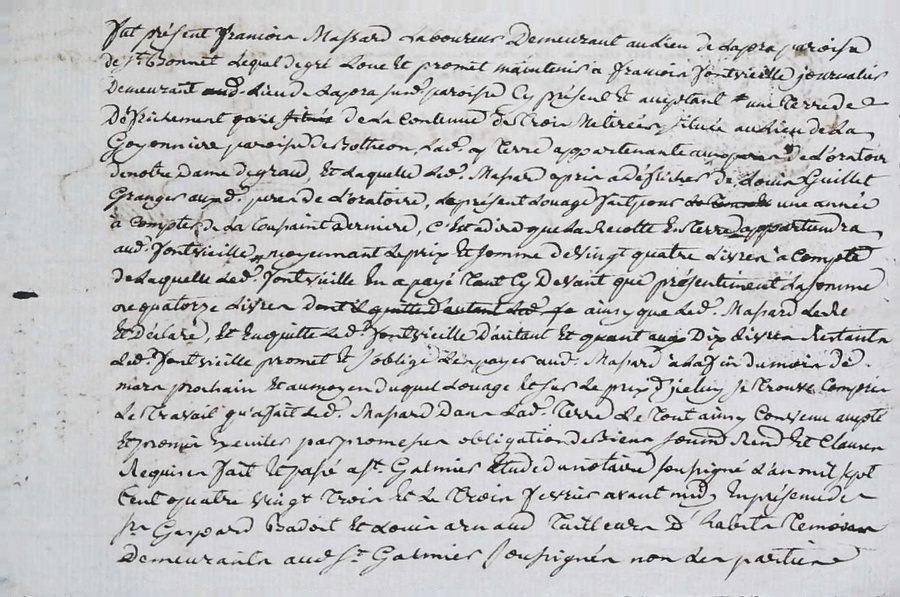 fut présent francois Massard Laboureur Demeurant au Lieu de Lapra paroisse
de St Bonnet Lequel de gré Loue et promet maintenir a francois fontvieille journalier
Demeurant aud. Lieu de Lapra susd. paroisse Cy présent et acceptant une terre de
Défrichement qui est située de La Contenue de trois Meterées, située au Lieu de La
Goyonniere paroisse de Botheon, Lad. terre appartenante aux de L'oratoire
de notre dame de graces, Et Laquelle Led. Massard a pris a deffricher de Louis Guillet
Granger auxd. peres de L'oratoire, Le présent Louage fait pour une année
a Compter de La toussaint derniere, C'est a dire que La Recolte En terre appartendra
aud. fontvieille, moyennant Le prix et somme de vingt quatre Livres a Compte
de Laquelle Led. fontvieille En a payé tant Cy Devant que présentement La somme
de quatorze Livres dont il quitte d'autant Led. fo ainsy que Led. Massard Le Re
Et Déclaré, Et En quitte Led. fontvieille d'autant Et quant aux Dix Livres Restants
Led. fontvieille promet Et s'oblige de Les payer aud. Massard a La fin du mois de
mars prochain Et au moyen duquel Louage et sur Le prix d'icelui se trouve Compris
Le travail qu'a fait Led. Massard dans Lad. terre Le tout ainsy Convenu accepté
Et promis Executer par promesses obligation de Biens soumis Rend Et Clauses
Requises fait Et passé a St Galmier Etude du notaire soussigné L'an mil sept
Cent quatre vingt trois Et Le trois fevrier avant midy En présence de
Sr Gaspard Badoit Et Louis arnaud tailleurs D'habits temoins
Demeurants aud. St Galmier soussignés non Les parties